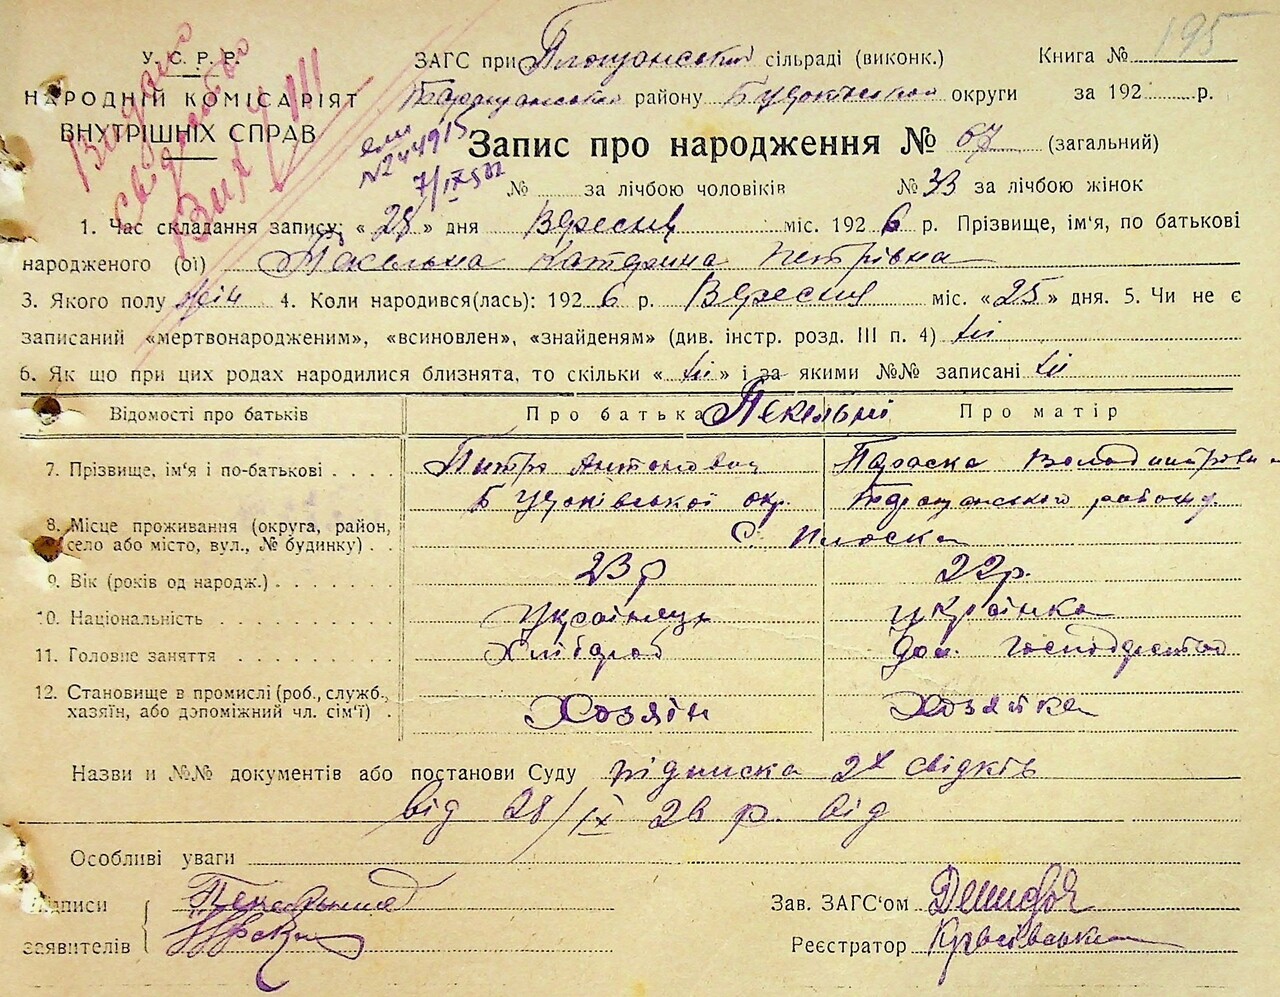 195
У. С. Р. Р.
НАРОДНІЙ КОМІСАРІЯТ
ВНУТРІШНІХ СПРАВ
Видано
свідоцтво
N244915
7/IX
ЗАГС при Площанській сільраді (виконк.)
Книга №
району округи за 192 р.
Запис про народження № 67 (загальний)
№ за лічбою чоловіків № 33 за лічбою жінок
1. Час складання запису: « 28 » дня Вересня міс. 1926 р. Прізвище, ім'я, по батькові
народженого (ої) Пекельна Катерина Петрівна
3. Якого полу жін 4. Коли народився(лась): 1926 р. Вересня міс. «25» дня. 5. Чи не є
записаний «мертвонародженим», «всиновлен», «знайденям» (див. інстр. розд. III п. 4) ні
6. Як що при цих родах народилися близнята, то скільки « ні » і за якими №№ записані ні
Відомості про батьків Про батька Пекельні Про матір
7. Прізвище, ім'я і по-батькові . . . . Петро Антонович Параска Володимировна
8. Місце проживання (округа, район, село або місто, вул., № будинку) . . округ. Таращанського району
С. Плоска
9. Вік (років од народж.) . . . . . . 23 р 22 р.
10. Національність . . . . . . . . Українець Українка
11. Головне заняття . . . . . . . . Хлібороб дом. господарство
12. Становище в промислі (роб., служб., хазяїн, або допоміжний чл. сім'ї) . Хозяін Хозяйка
Назви и №№ документів або постанови Суду підписка 2х свідків
від 28/IX 26 р. від
Особливі уваги
Підписи
заявителів
Зав. ЗАГС'ом
Реєстратор